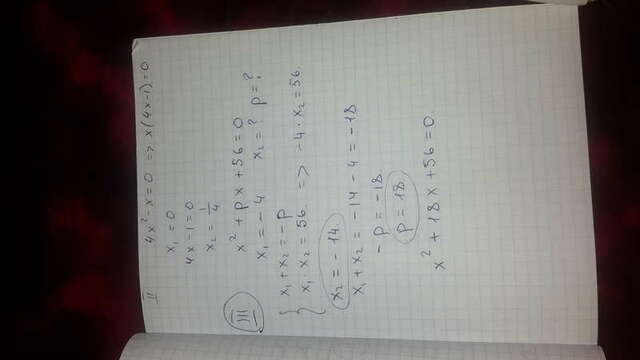 II 4x² - x = 0 => x(4x-1) = 0
x₁ = 0
4x - 1 = 0
x₂ = 1/4
III x² + px + 56 = 0
x₁ = -4 x₂ = ? p = ?
{ x₁ + x₂ = -p
x₁ · x₂ = 56 => -4 · x₂ = 56
x₂ = -14
x₁ + x₂ = -14 - 4 = -18
-p = -18
p = 18
x² + 18x + 56 = 0